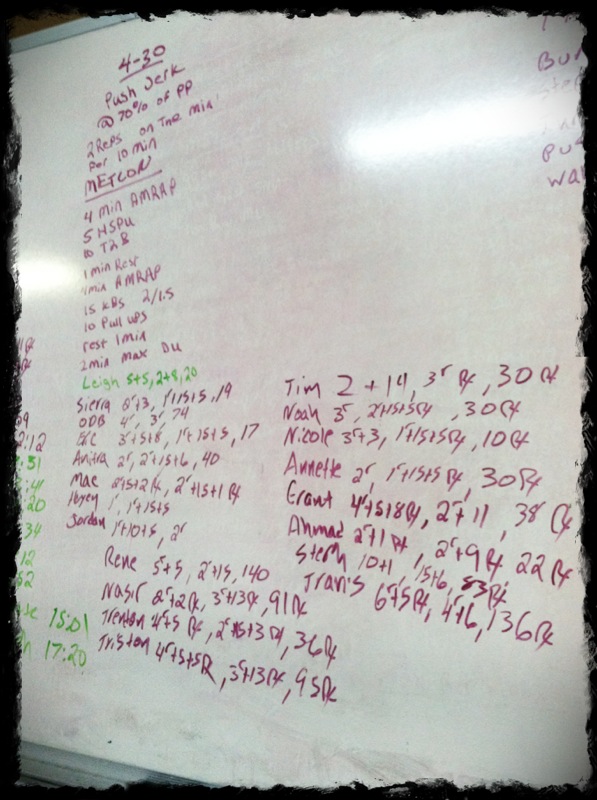 4-30
Push Jerk
@ 70% of PP
2 Reps on The min
for 10 min
METCON
4 min AMRAP
5 HSPU
10 T2B
1 min Rest
4 min AMRAP
15 KBS 2/1.5
10 Pull ups
rest 1 min
2 min max DU
Leigh 5+5, 2+8, 20
Sierra 2r+3, 1r+15+5, 19
ODB 4r, 3r, 74
3r+5+8, 1r+15+5, 17
Anitra 2r, 2r+15+6, 40
Mac 2r+5+2Rx, 2r+15+1 Rx
1r, 1r+15+5
Jordan 1r+10+5, 2r
Rene 5r+5, 2r+15, 140
Nasir 2r+2Rx, 3r+13Rx, 91Rx
Trenton 4r+5 Rx, 2r+15+3Rx, 36Rx
Triston 4r+5+5Rx, 3r+13Rx, 95Rx
Tim 2+14, 3r Rx, 30 Rx
Noah 3r, 2r+15+5Rx, 30Rx
Nicole 3r+3, 1r+15+5Rx, 10Rx
Annette 2r, 1r+15+5 Rx, 30Rx
Grant 4r+5+8Rx, 2r+11, 38 Rx
Ahmad 2r+1 Rx, 2r+9 Rx, 22 Rx
Steph 10+1, 15+6, 83Rx
Travis 6r+5Rx, 4r+6, 136Rx
2:12
12
52
15:01
17:20
Pu
Wa